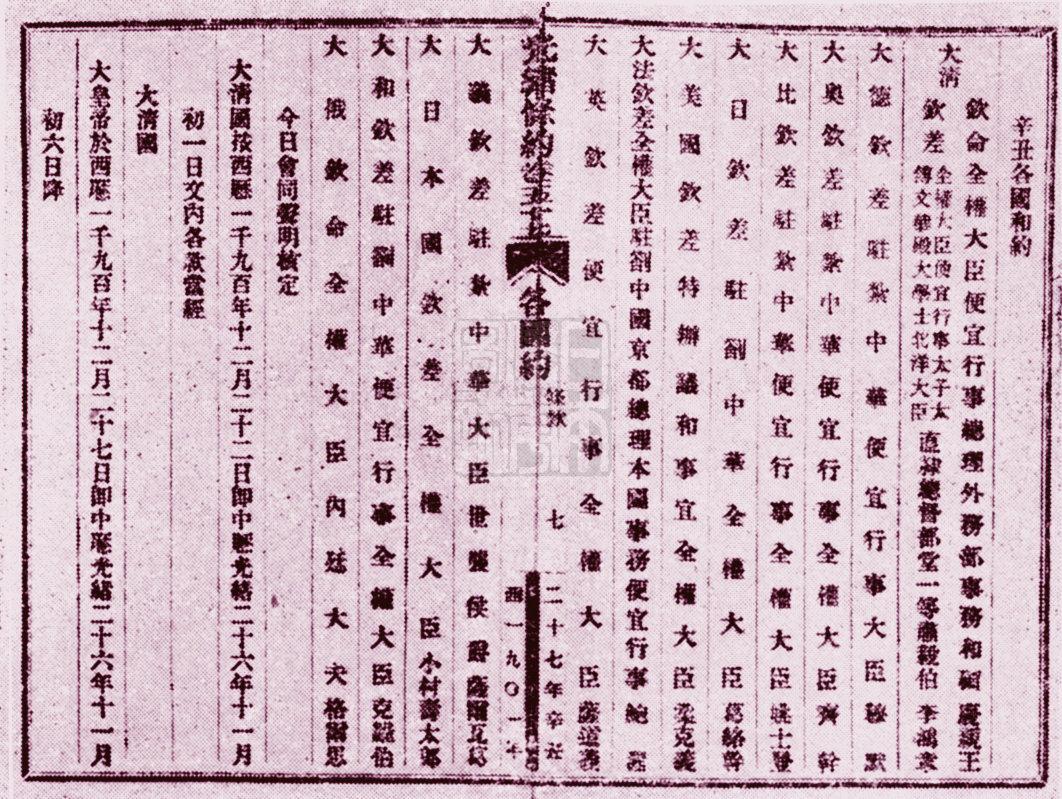 辛丑各國和約
大清
欽命全權大臣便宜行事總理外務部事務和碩慶親王
欽差全權大臣便宜行事太子太傅文華殿大學士北洋大臣直隸總督部堂一等肅毅伯李鴻章
大德欽差駐紮中華便宜行事大臣穆默
大奧欽差駐紮中華便宜行事全權大臣齊幹
大比欽差駐紮中華便宜行事全權大臣姚士登
大日欽差駐劄中華全權大臣葛絡幹
大美國欽差特辦議和事宜全權大臣柔克義
大法欽差全權大臣駐劄中國京都總理本國事務便宜行事鮑
大英欽差便宜行事全權大臣薩道義
光緒條約卷五十 各國約 七 二十七年辛丑 西一九〇一年
大義欽差駐紮中華大臣世襲侯爵薩爾瓦葛
大日本國欽差全權大臣小村壽太郎
大和欽差駐劄中華便宜行事全權大臣克羅伯
大俄欽命全權大臣內廷大夫格爾思
今日會同聲明核定
大清國按西曆一千九百年十二月二十二日卽中曆光緒二十六年十一月
初一日文內各款當經
大清國
大皇帝於西曆一千九百年十二月二十七日卽中曆光緒二十六年十一月
初六日降